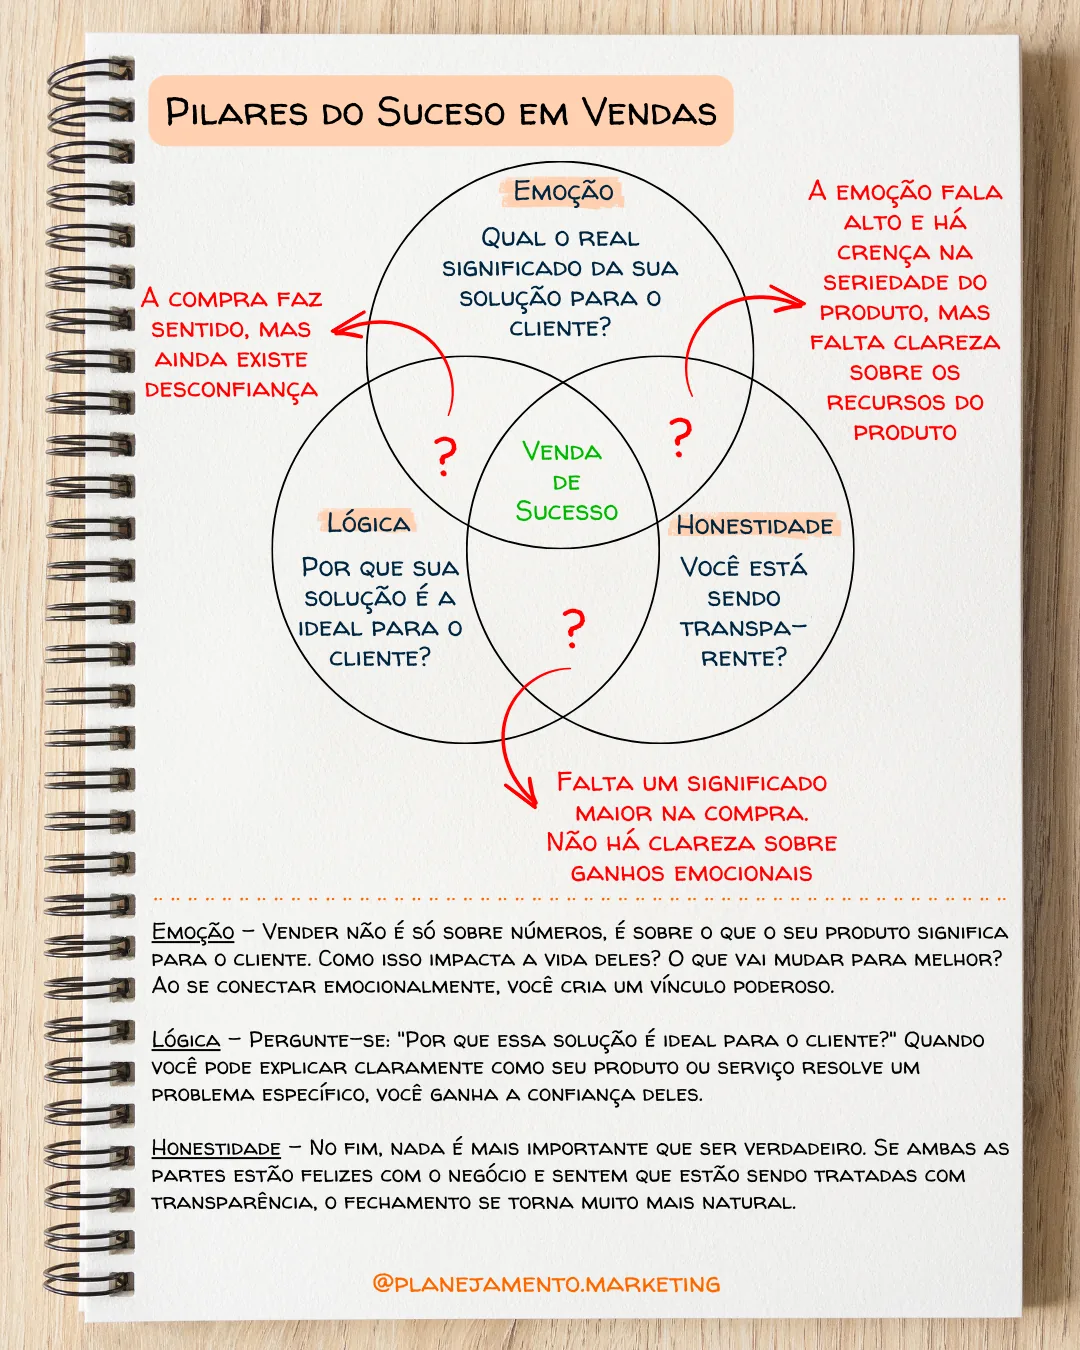 Pilares do Suceso em Vendas
Emoção
Qual o real
significado da sua
solução para o
cliente?
A emoção fala
alto e há
crença na
seriedade do
produto, mas
falta clareza
sobre os
recursos do
produto
A compra faz
sentido, mas
ainda existe
desconfiança
?
?
Venda
de
Sucesso
Lógica
Por que sua
solução é a
ideal para o
cliente?
Honestidade
Você está
sendo
transpa-
rente?
?
Falta um significado
maior na compra.
Não há clareza sobre
ganhos emocionais
Emoção - Vender não é só sobre números, é sobre o que o seu produto significa
para o cliente. Como isso impacta a vida deles? O que vai mudar para melhor?
Ao se conectar emocionalmente, você cria um vínculo poderoso.
Lógica - Pergunte-se: "Por que essa solução é ideal para o cliente?" Quando
você pode explicar claramente como seu produto ou serviço resolve um
problema específico, você ganha a confiança deles.
Honestidade - No fim, nada é mais importante que ser verdadeiro. Se ambas as
partes estão felizes com o negócio e sentem que estão sendo tratadas com
transparência, o fechamento se torna muito mais natural.
@planejamento.marketing